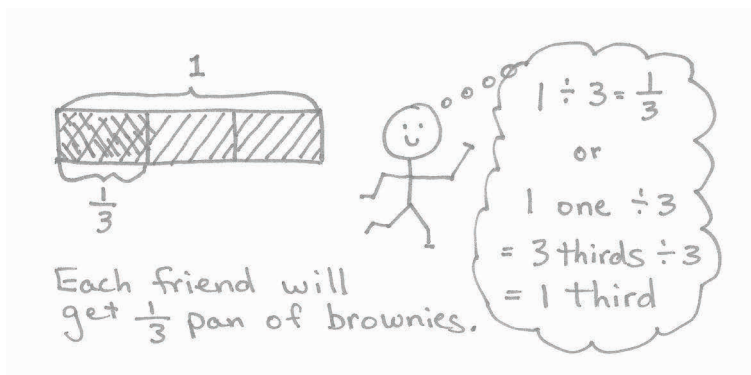 1
1/3
Each friend will
get 1/3 pan of brownies.
1 ÷ 3 = 1/3
or
1 one ÷ 3
= 3 thirds ÷ 3
= 1 third